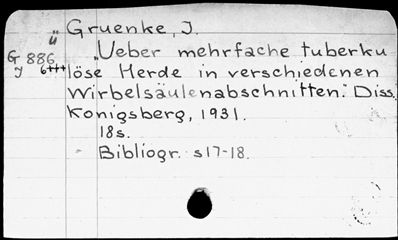 Gruenke, J.
ü
G 886 "Ueber mehrfache tuberku
J 6+++ löse Herde in verschiedenen
Wirbelsäulenabschnitten." Diss.
Königsberg, 1931.
18s.
Bibliogr. s17-18.